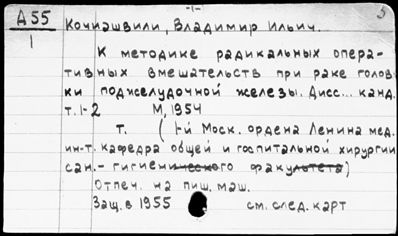 -1-
3
А55
1
Кочиашвили, Владимир Ильич.
К методике радикальных опера-
тивных вмешательств при раке голов
ки поджелудочной железы. Дисс... канд.
т. 1-2 М, 1954
т. (1-й Моск. ордена Ленина мед.
ин-т. кафедра общей и госпитальной хирургии
сан.- гигиенического факультета)
Отпеч. на пиш. маш.
Защ. в 1955 см. след. карт